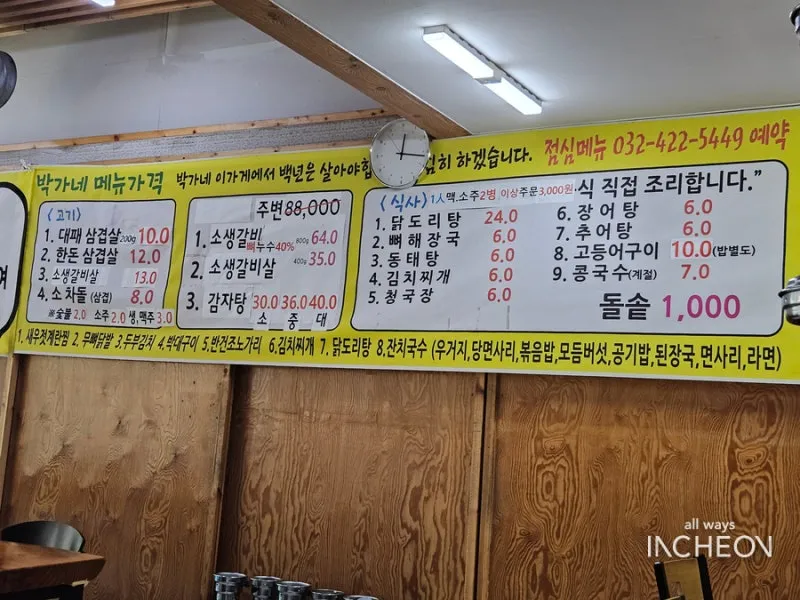 박가네 메뉴가격
박가네 이가게에서 백년은 살아야합 히 하겠습니다.
점심메뉴 032-422-5449 예약
〈고기〉
1. 대패 삼겹살 200g 10.0
2. 한돈 삼겹살 12.0
3. 소생갈비살 13.0
4. 소차돌 (삼겹) 8.0
※숯불 2.0 소주 2.0 생,맥주 3.0
주변88,000
1. 소생갈비 800g 64.0
뼈누수40%
2. 소생갈비살 400g 35.0
3. 감자탕 30.0 36.0 40.0
소 중 대
〈식사〉 1人맥.소주2병 이상주문3,000원. 식 직접 조리합니다."
1. 닭도리탕 24.0
2. 뼈해장국 6.0
3. 동태탕 6.0
4. 김치찌개 6.0
5. 청국장 6.0
6. 장어탕 6.0
7. 추어탕 6.0
8. 고등어구이 10.0 (밥별도)
9. 콩국수(계절) 7.0
돌솥 1,000
1. 새우젓계란찜 2. 무뼈닭발 3.두부김치 4.박대구이 5.반건조노가리 6.김치찌개 7. 닭도리탕 8.잔치국수 (우거지,당면사리,볶음밥,모듬버섯,공기밥,된장국,면사리,라면)
며
all ways
INCHEON